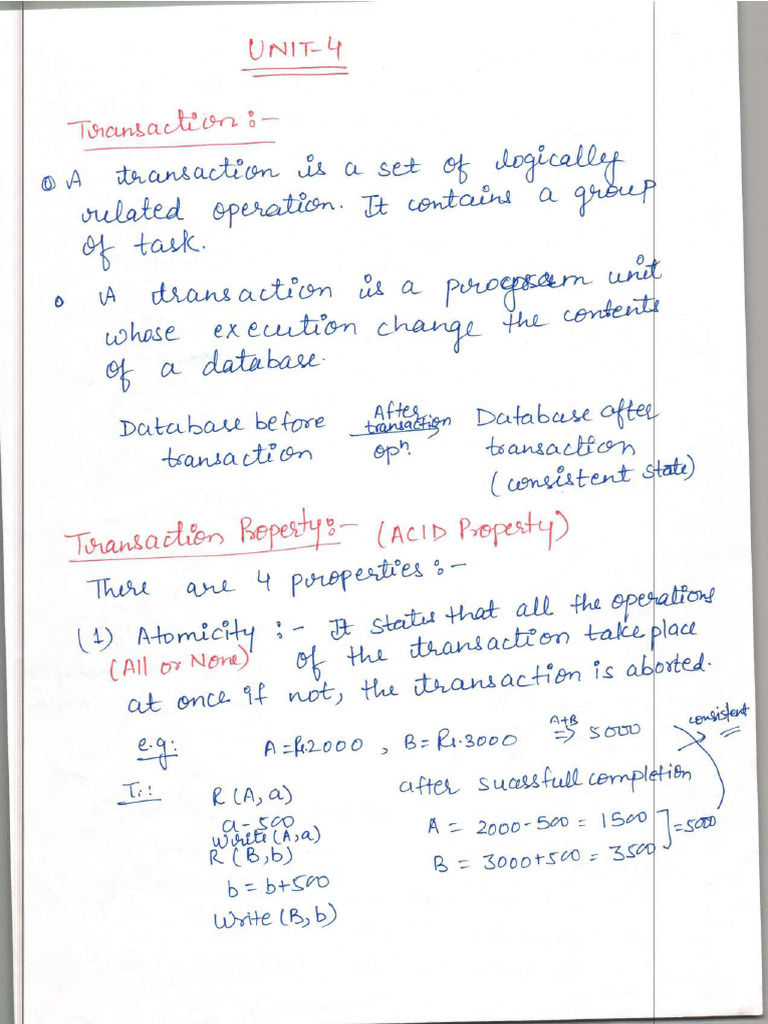 UNIT-4
Transaction :-
A transaction is a set of logically
related operation. It contains a group
of task.
A transaction is a program unit
whose execution change the contents
of a database.
Database before After transaction opn. Database after
transaction transaction
(consistent state)
Transaction Property:- (ACID Property)
There are 4 properties :-
(1) Atomicity :- It states that all the operations
(All or None) of the transaction take place
at once if not, the transaction is aborted.
e.g: A=Rs.2000 , B=Rs.3000 A+B ⇒ 5000 consistent
T1: R(A,a) after sucessfull completion
a-500 A = 2000-500 = 1500
Write(A,a)
R(B,b) B = 3000+500 = 3500 ] =5000
b = b+500
Write(B,b)